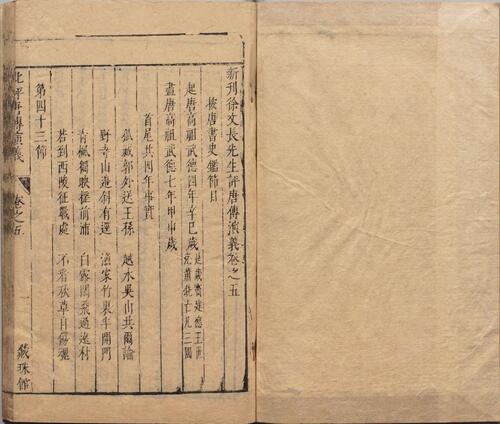 新刊徐文長先生評唐傳演義卷之五
按唐書史鑑節目
起唐高祖武德四年辛巳歲
是歲竇建德王世
充蕭銑亡凡三國
盡唐高祖武德七年甲申歲
首尾共四年事實
孤城郭外送王孫 越水吳山共爾論
野寺山邊斜有逕 漁家竹裏半開門
青楓獨映搖前浦 白鷺閒飛過遠村
若到西陵征戰處 不看秋草自傷魂
第四十三節
批評唐傳演義 卷之五 一 藏珠館